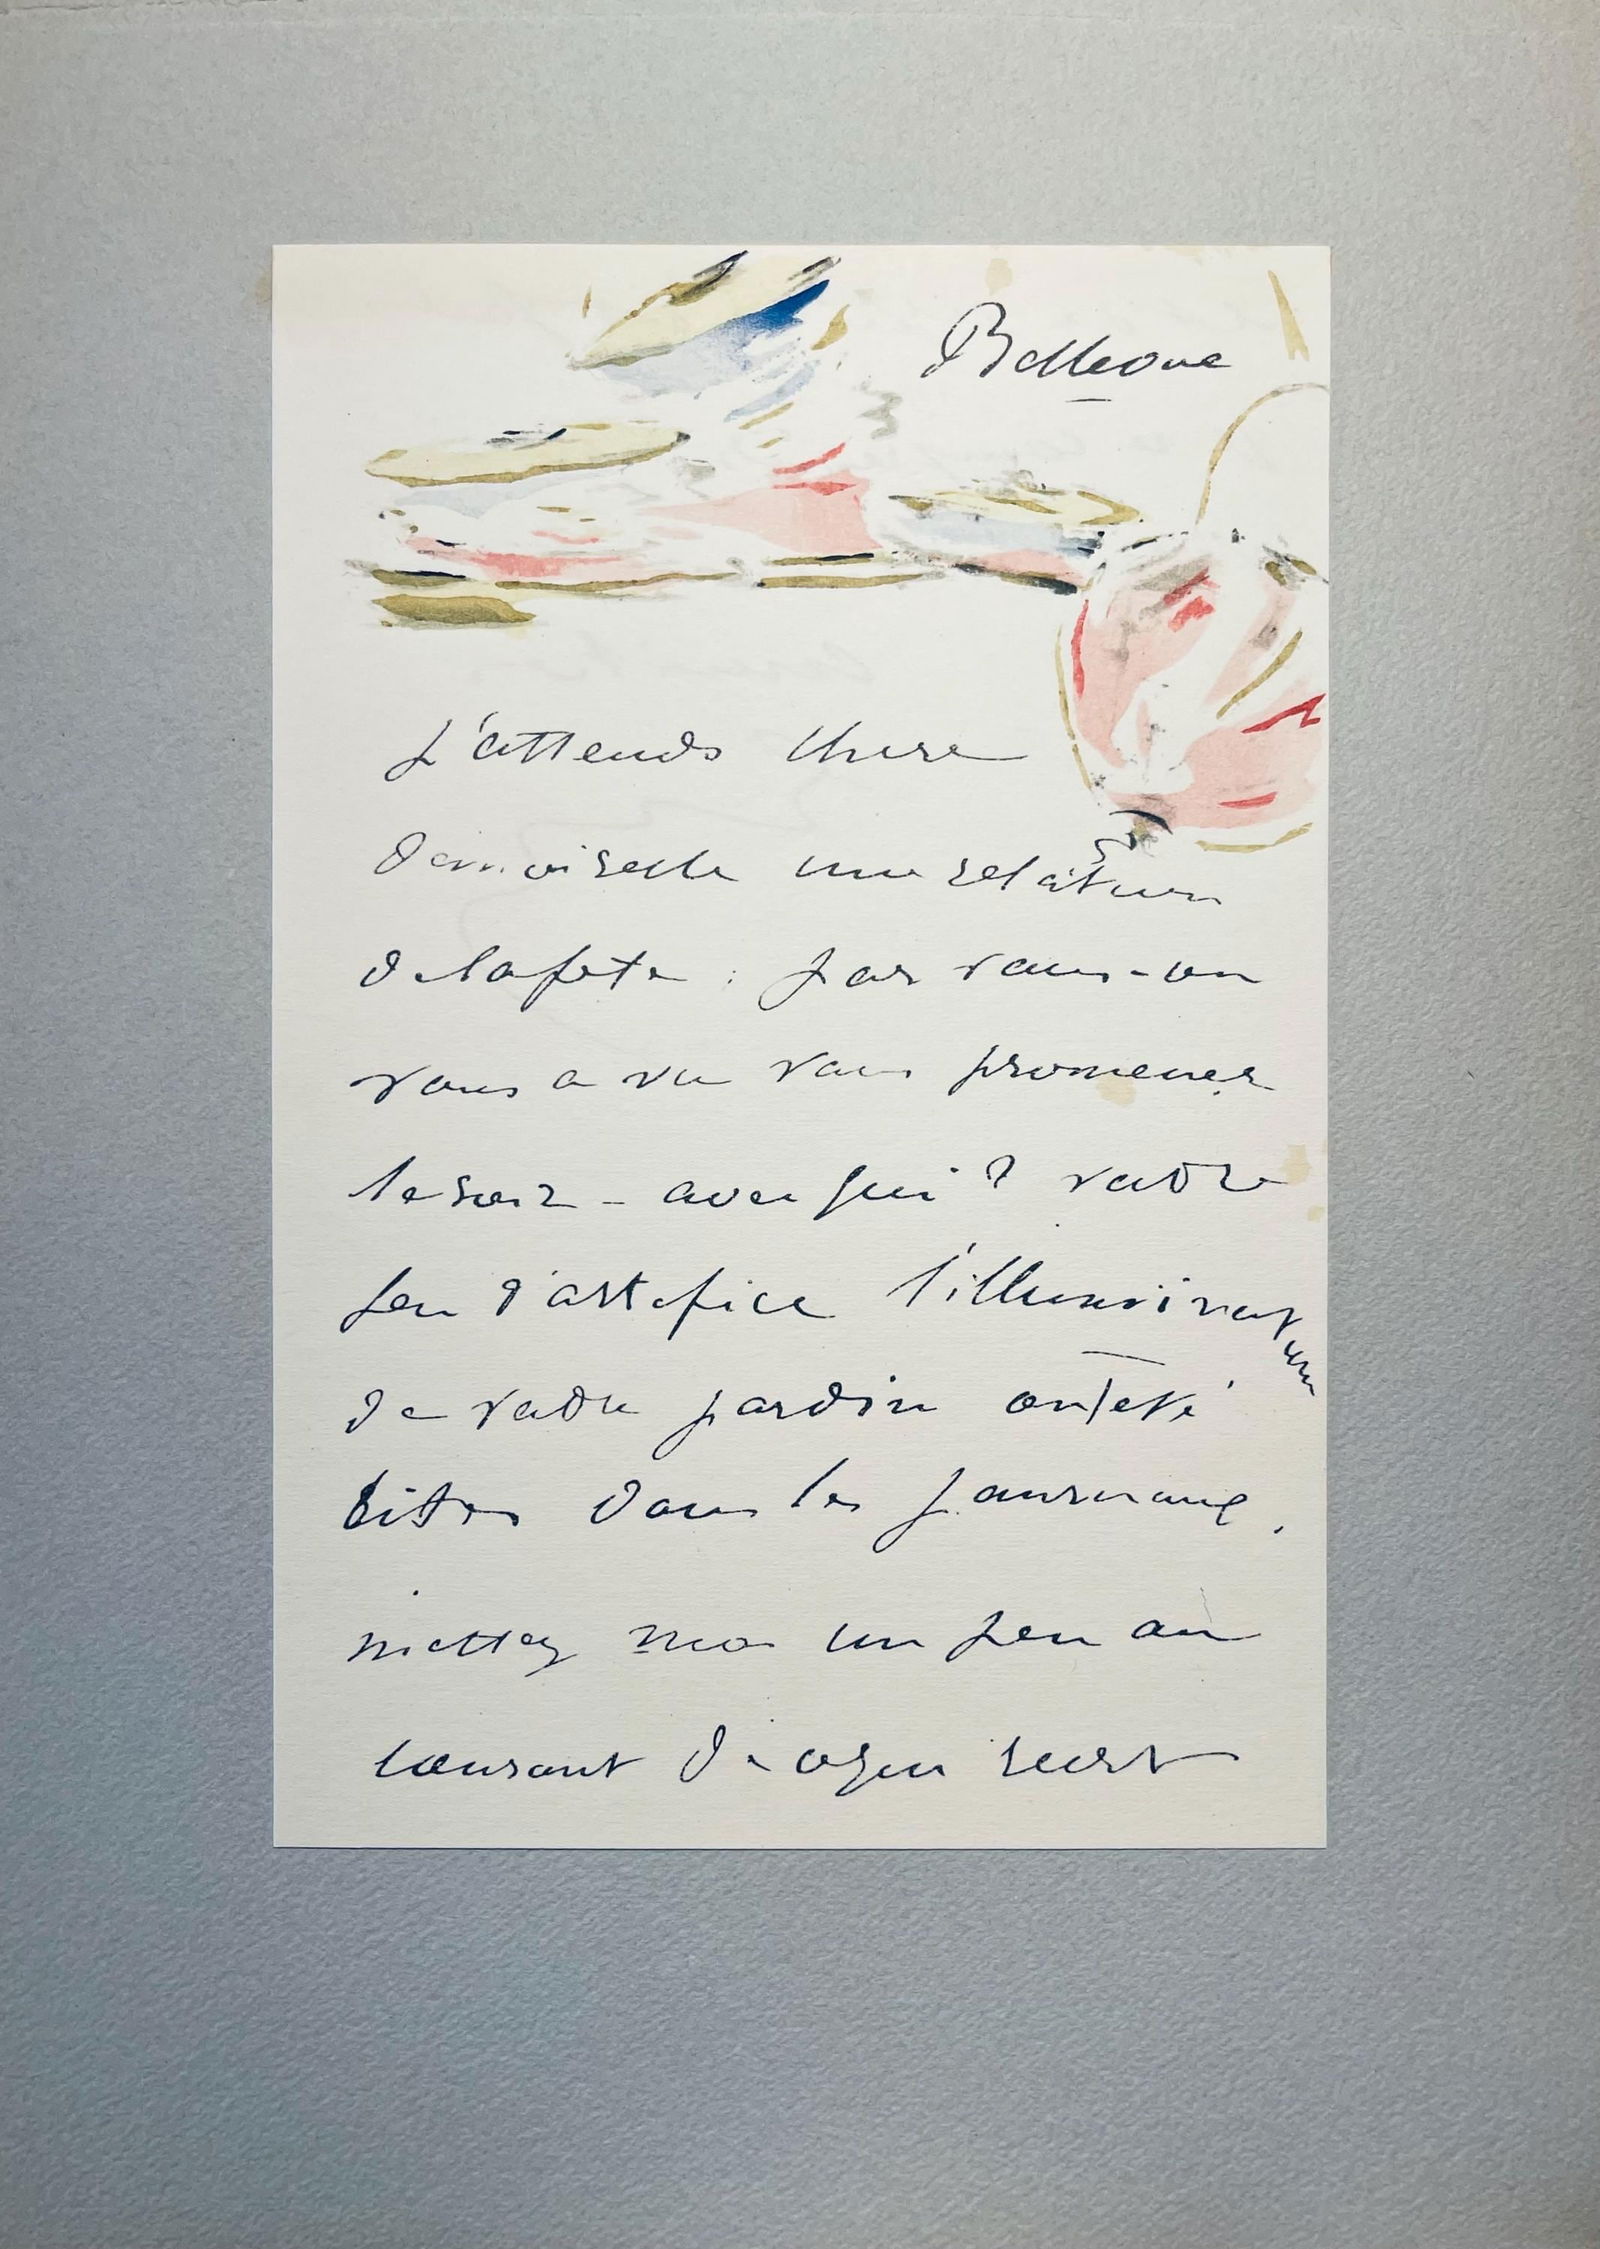 Bellevue
J'attends chere
demoiselle une relation
de la fete : par vous - on
vous a vu vous promener
le soir - avec qui ? votre
feu d'artifice l'illumination
de votre jardin ont été
cités dans les journaux.
mettez moi un peu au
courant de ce qui